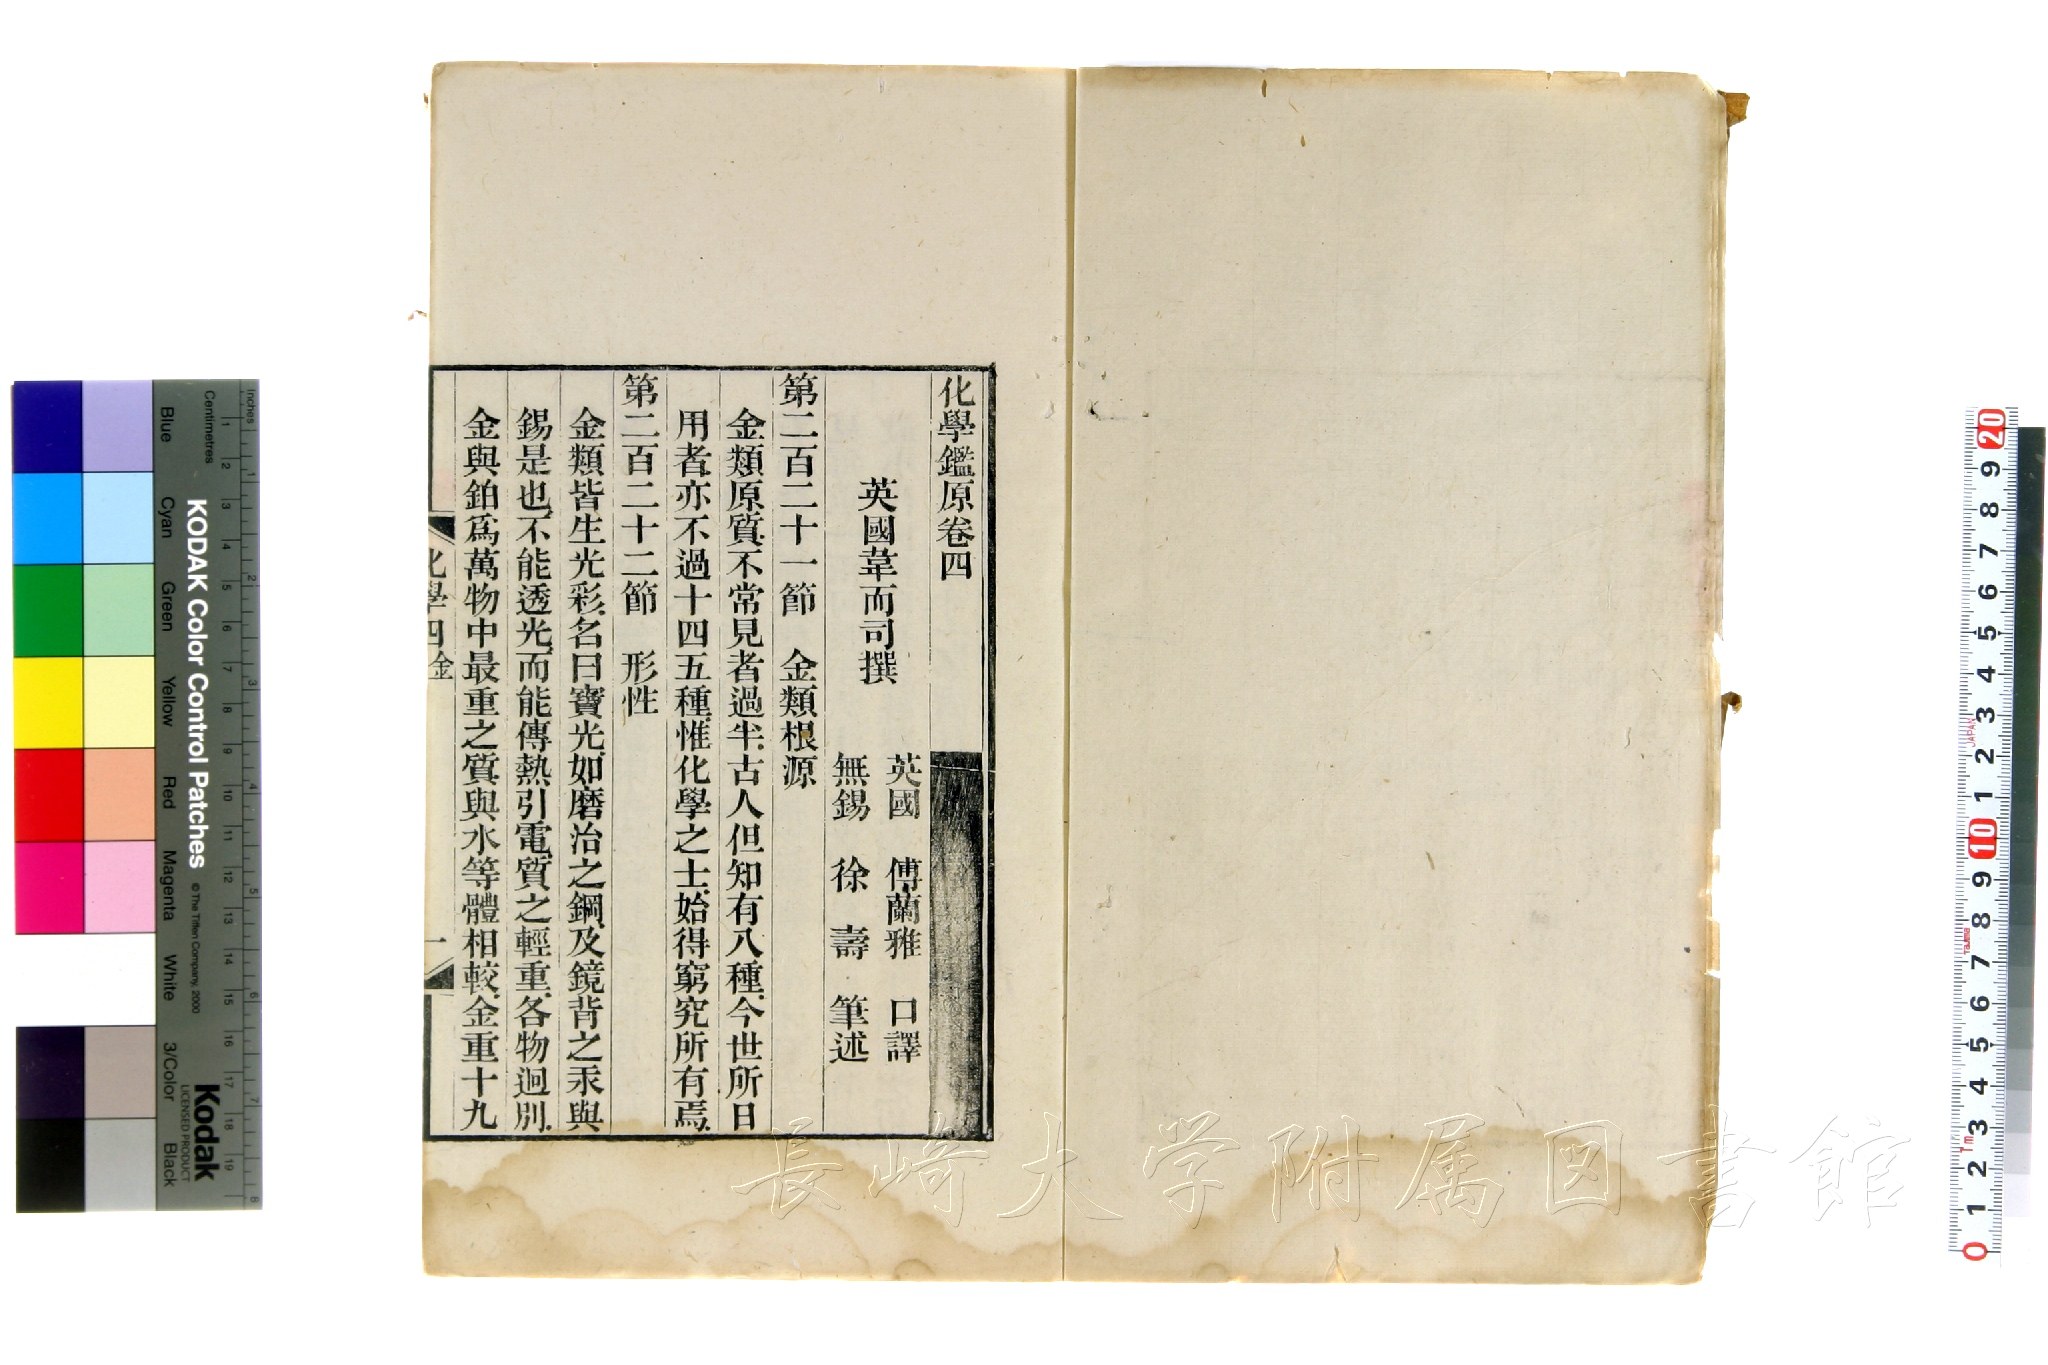 化學鑑原卷四
英國韋而司撰
英國 傅蘭雅 口譯
無錫 徐 壽 筆述
第二百二十一節 金類根源
金類原質、不常見者過半、古人但知有八種、今世所日
用者、亦不過十四五種、惟化學之士、始得窮究所有焉、
第二百二十二節 形性
金類皆生光彩、名曰寶光、如磨治之鋼、及鏡背之汞與
錫是也、不能透光、而能傳熱引電、質之輕重、各物迥別、
金與鉑爲萬物中最重之質、與水等體相較、金重十九
化學四 金
一
長崎大学附属図書館
KODAK Color Control Patches
©The Tiffen Company, 2000
Kodak
LICENSED PRODUCT
Inches
Centimetres
1 2 3 4 5 6 7 8
1 2 3 4 5 6 7 8 9 10 11 12 13 14 15 16 17 18 19
Blue
Cyan
Green
Yellow
Red
Magenta
White
3/Color
Black
20 9 8 7 6 5 4 3 2 1 10 9 8 7 6 5 4 3 2 1 0
JAPAN
Tajima
1m